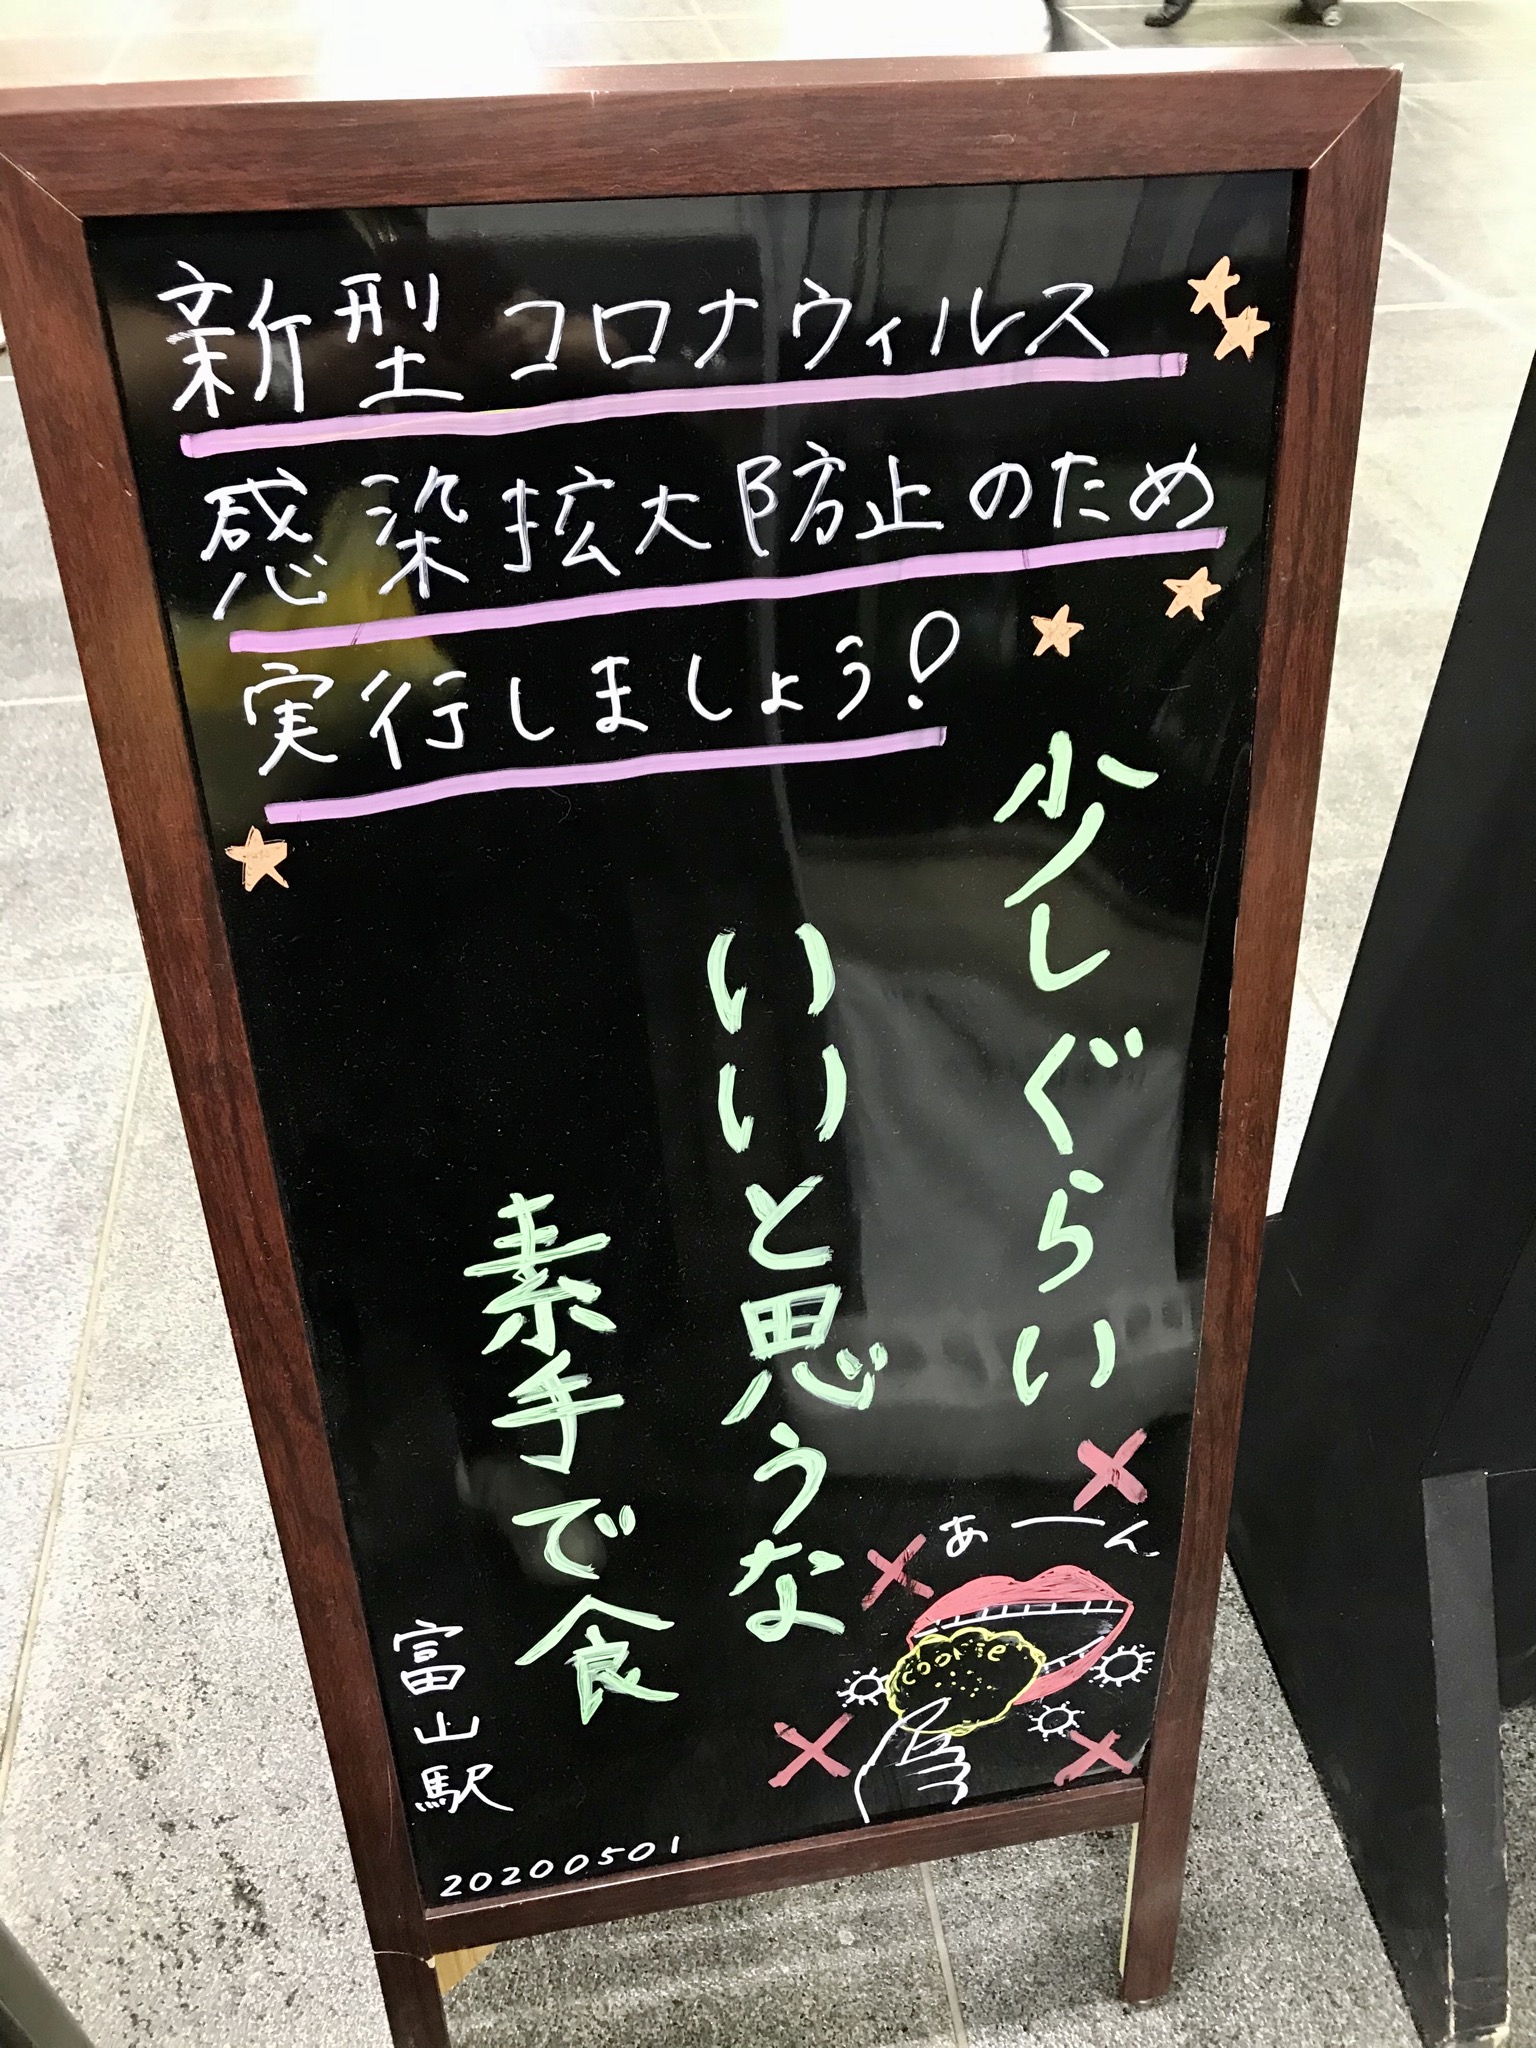 新型コロナウィルス
感染拡大防止のため
実行しましょう!
少しぐらい
いいと思うな
素手で食
あーん
cookie
富山駅
20200501